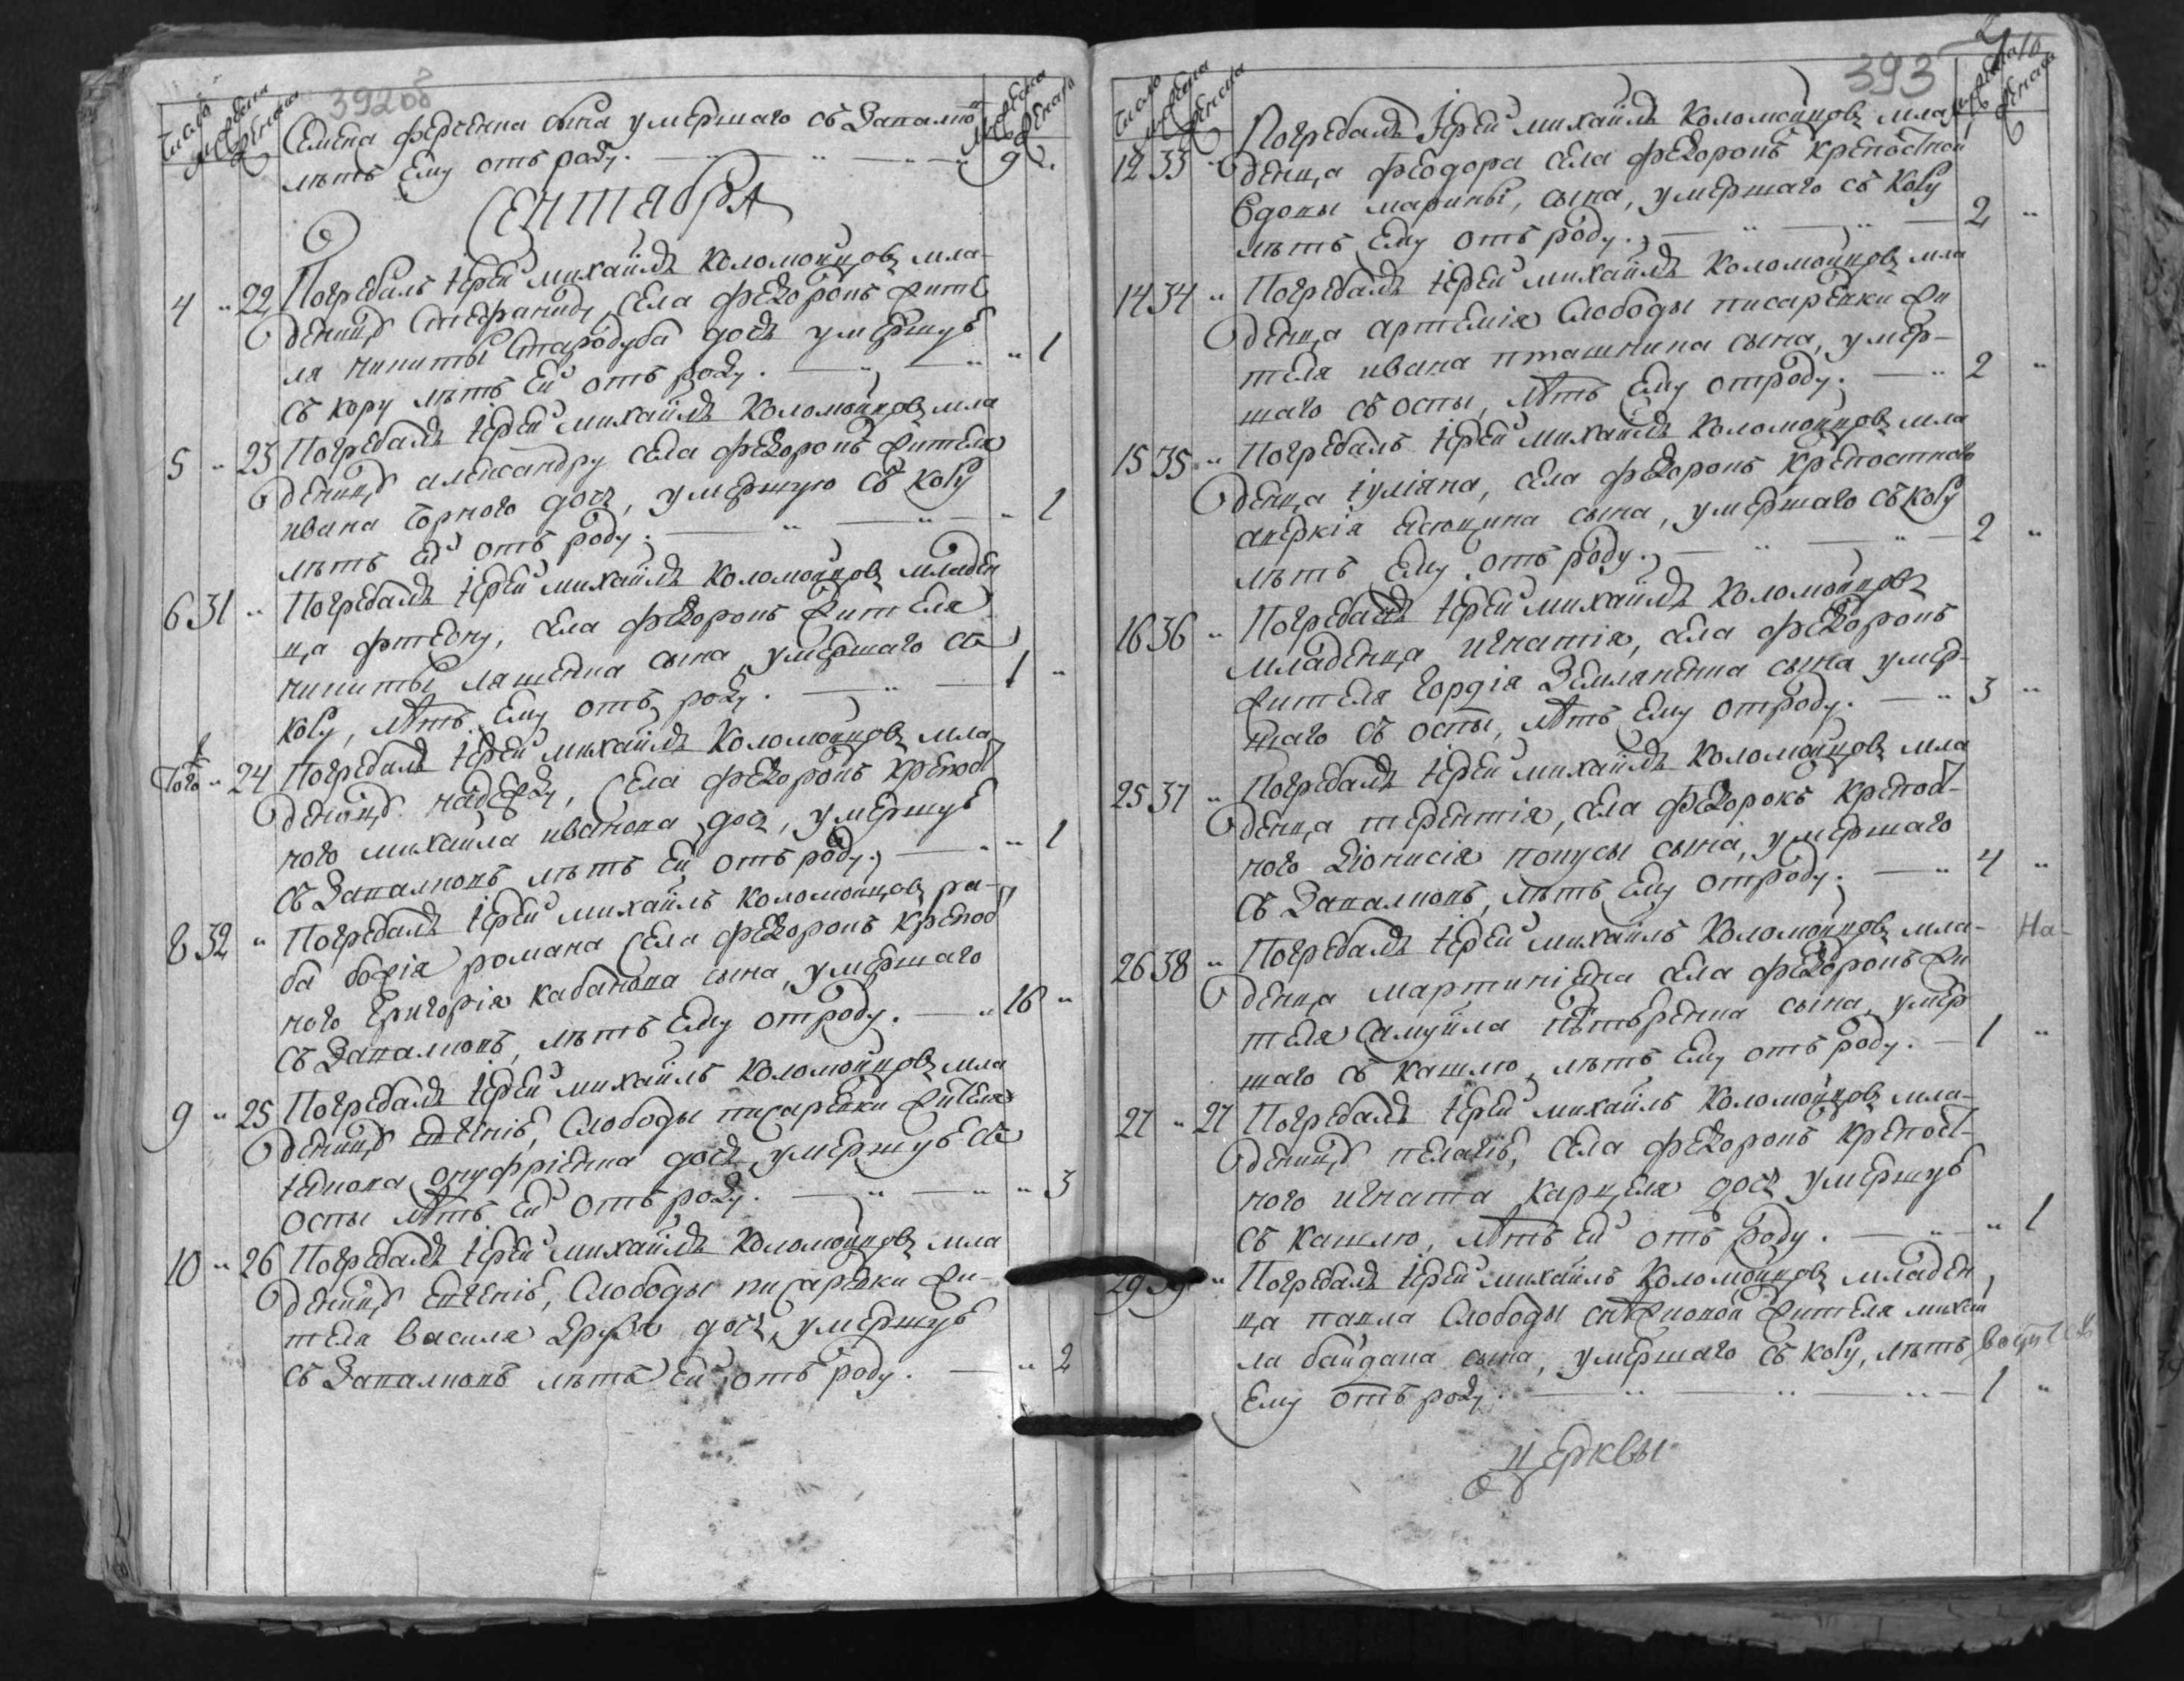 392 об
число
мужеска
женска
мужеска
женска
Семена ферсенка сына умершаго съ Запално
лѣтъ Ему отъ роду. 92
Сентября
4 " 22 Погребалъ іерей михаилъ Коломойцовъ мла-
деницу Стефаниду, села федоровъ жите
ля никиты Стародуба дочъ умершую
съ кору лѣтъ Ей отъ роду. " 1
5 " 23 Погребалъ іерей михаилъ Коломойцовъ мла
деницу александру села федоровъ жителя
ивана Чорного дочъ, умершую съ кору
лѣтъ Ей отъ роду. " 1
6 31 " Погребалъ іерей михаилъ Коломойцовъ младен
ца села федоровъ жителя
никиты ляшенка сына умершаго съ
кору, лѣтъ Ему отъ роду. 1 "
Того " 24 Погребалъ іерей михаилъ Коломойцовъ мла
деницу надежду, села федоровъ крепост
ного михаила иванова дочъ, умершую
съ Запалиовъ лѣтъ Ей отъ роду. " 1
8 32 " Погребалъ іерей михаилъ Коломойцовъ ра-
ба божія романа села федоровъ крепост
ного Григорія кабанова сына, умершаго
съ Запалиовъ, лѣтъ Ему отроду. 16 "
9 " 25 Погребалъ іерей михаилъ Коломойцовъ мла
деницу евгенію, Слободы писаревки жителя
онуфріенка дочъ умершую съ
оспы лѣтъ Ей отъ роду. " 3
10 " 26 Погребалъ іерей михаилъ Коломойцовъ мла
деницу Евгенію, Слободы писаревки жи-
теля василя дочъ, умершую
съ Запалиовъ лѣтъ Ей отъ роду. " 2
393
число
мужеска
женска
мужеска
женска
Погребалъ іерей михаилъ Коломойцовъ мла
12 33 " денца феодора села федоровъ крепостной
вдовы марины, сына, умершаго съ кору
лѣтъ Ему отъ роду. 2 "
14 34 " Погребалъ іерей михаилъ Коломойцовъ мла
денца артемія Слободы писаревки жи
теля ивана пташника сына, умер-
шаго съ оспы, лѣтъ Ему отроду. 2 "
15 35 " Погребалъ іерей михаилъ Коломойцовъ мла
денца іуліана, села федоровъ крепостного
аверкія сына, умершаго съ кору
лѣтъ Ему отъ роду. 2 "
16 36 " Погребалъ іерей михаилъ Коломойцовъ
младенца игнатія, села федоровъ
жителя гордія Земляненка сына умер-
шаго съ оспы, лѣтъ Ему отроду. 3 "
25 37 " Погребалъ іерей михаилъ Коломойцовъ мла
денца терентія, села федоровъ крепост-
ного діонисія сына, умершаго
съ Запалиовъ, лѣтъ Ему отроду. 4 "
26 38 " Погребалъ іерей михаилъ Коломойцовъ мла- На-
денца села федоровъ жи
теля Самуила сына, умер
шаго съ кашлю, лѣтъ Ему отъ роду. 1 "
27 " 27 Погребалъ іерей михаилъ Коломойцовъ мла-
деницу пелагію, села федоровъ крепост-
ного игната карцеля дочъ умершую
съ кашлю, лѣтъ Ей отъ роду. " 1
29 39 " Погребалъ іерей михаилъ Коломойцовъ младен
ца павла Слободы жителя михаи
ла байдака сына, умершаго съ кору, лѣтъ
Ему отъ роду. 1 "
церквы